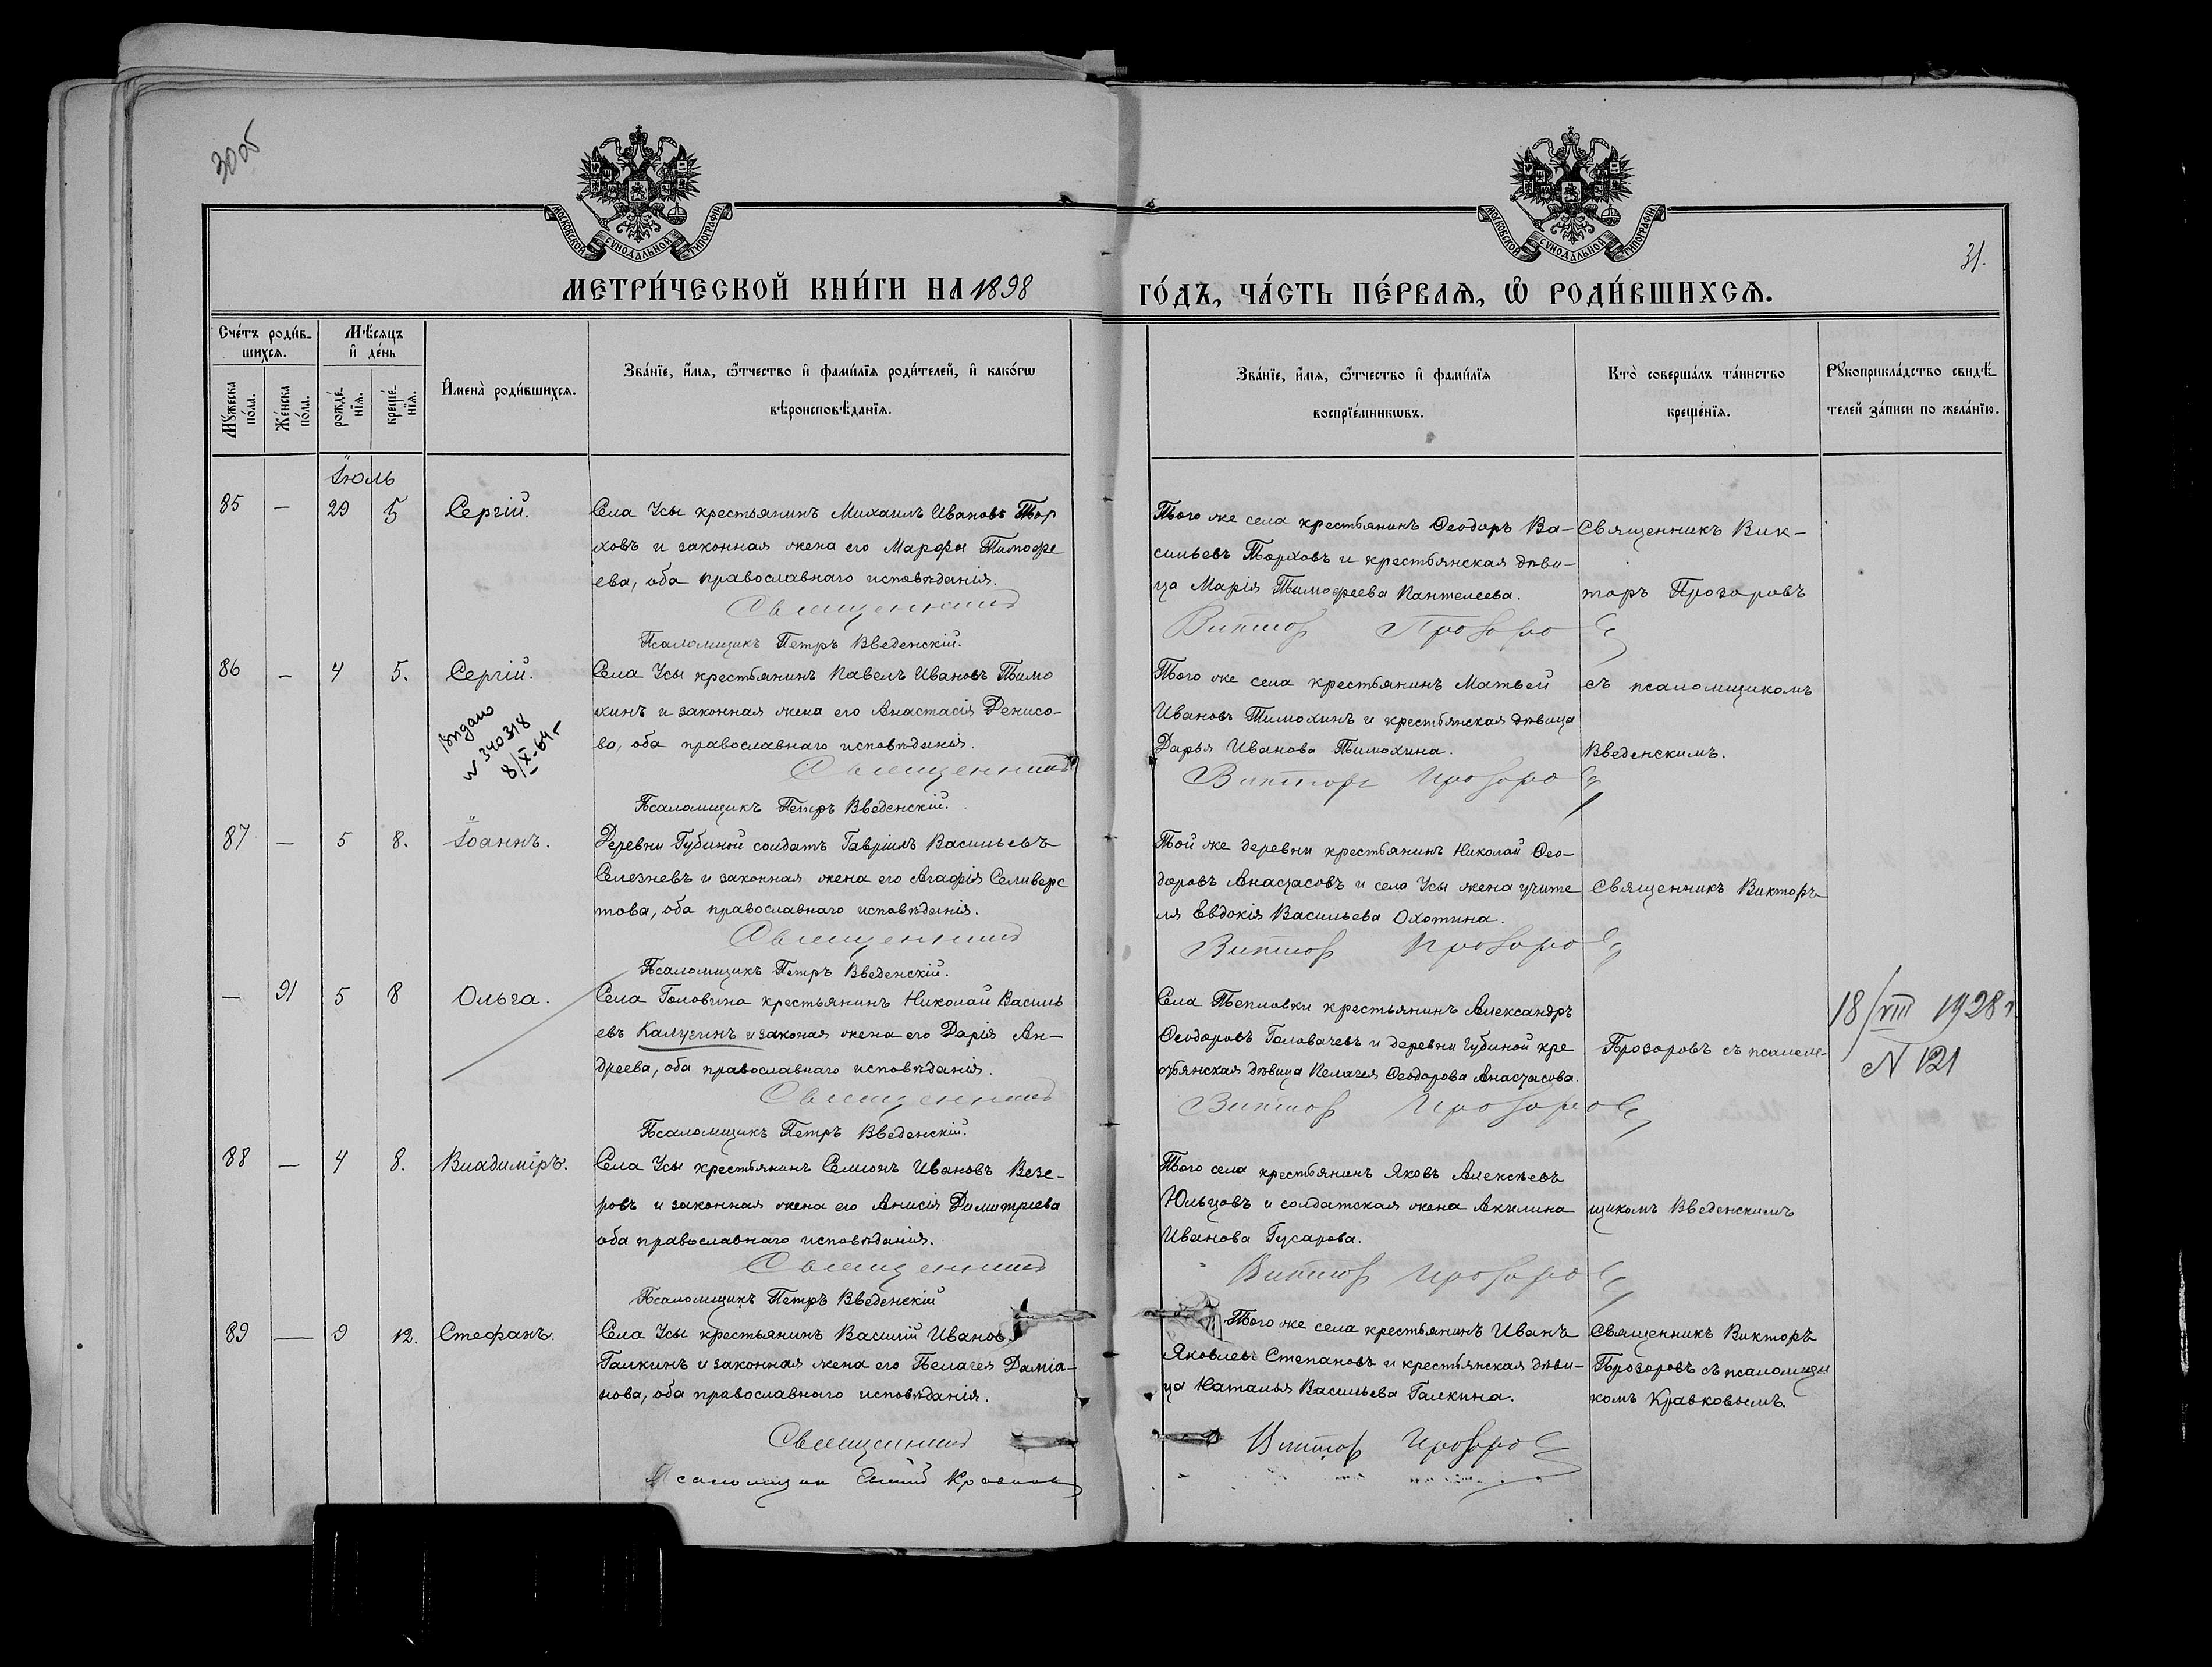 30об
МОСКОВСКОЙ СѴНОДАЛЬНОЙ ТИПОГРАФІИ
МОСКОВСКОЙ СѴНОДАЛЬНОЙ ТИПОГРАФІИ
31.
МЕТРИ́ЧЕСКОЙ КНИ́ГИ НА 1898
ГО́ДЪ, ЧА́СТЬ ПЕ́РВАѦ, Ѽ РОДИ́ВШИХСѦ.
Сче́тъ роди́в-
шихсѧ.
Мꙋ́жеска по́ла.
Же́нска по́ла.
Мѣ́сѧцъ
и҆ де́нь
рожде́-нїѧ.
креще́-нїѧ.
И҆мена̀ роди́вшихсѧ.
Зва́нїе, и҆́мѧ, ѻ҆́тчество и҆ фами́лїѧ роди́телей, и҆ како́гѡ
вѣроисповѣ́данїѧ.
Зва́нїе, и҆́мѧ, ѻ҆́тчество и҆ фами́лїѧ
воспрїе́мникѡвъ.
Кто̀ соверша́лъ та́инство
креще́нїѧ.
Рꙋкоприкла́дство свидѣ́-
телей за́писи по жела́нїю.
Іюль
85 — 29 5 Сергій.
Села Усы крестьянинъ Михаилъ Ивановъ Тор
ховъ и законная жена его Марфа Тимофе
ева, оба православнаго исповѣданія.
Священникъ
Псаломщикъ Петръ Введенскій.
Того же села крестьянинъ Ѳеодоръ Ва-
сильевъ Торховъ и крестьянская дѣви-
ца Марія Тимофеева Пантелеева.
Викторъ Прозоровъ
Священникъ Вик-
торъ Прозоровъ
86 — 4 5. Сергій.
выдано
№ 340318
8/X-64г
Села Усы крестьянинъ Павелъ Ивановъ Тимо
хинъ и законная жена его Анастасія Денисо-
ва, оба православнаго исповѣданія.
Священникъ
Псаломщикъ Петръ Введенскій.
Того же села крестьянинъ Матвей
Ивановъ Тимохинъ и крестьянская дѣвица
Дарья Иванова Тимохина.
Викторъ Прозоровъ
съ псаломщикомъ
Введенскимъ.
87 — 5 8. Іоаннъ.
Деревни Губиной солдатъ Гавріилъ Васильевъ
Селезневъ и законная жена его Агафія Селиверс
това, оба православнаго исповѣданія.
Священникъ
Псаломщикъ Петръ Введенскій.
Той же деревни крестьянинъ Николай Ѳео-
доровъ Анасчасовъ и села Усы жена учите
ля Евдокія Васильева Охотина.
Викторъ Прозоровъ
Священникъ Викторъ
— 91 5 8 Ольга.
Села Головина крестьянинъ Николай Василь
евъ Калугинъ и законая жена его Дарія Ан-
дреева, оба православнаго исповѣданія.
Священникъ
Псаломщикъ Петръ Введенскій.
Села Тепловки крестьянинъ Александръ
Ѳеодоровъ Головачевъ и деревни Губиной кре
стьянская дѣвица Пелагея Ѳеодорова Анасчасова.
Викторъ Прозоровъ
Прозоровъ съ псалом-
18/VIII 1928 г.
N 121
88 — 4 8. Владиміръ.
Села Усы крестьянинъ Семіонъ Ивановъ Везе-
ровъ и законная жена его Анисія Димитріева
оба православнаго исповѣданія.
Священникъ
Псаломщикъ Петръ Введенскій
Того села крестьянинъ Яковъ Алексѣевъ
Юльцовъ и солдатская жена Акилина
Иванова Гусарова.
Викторъ Прозоровъ
щикомъ Введенскимъ
89 — 9 12. Стефанъ.
Села Усы крестьянинъ Василій Иванов
Галкинъ и законная жена его Пелагея Даміа-
нова, оба православнаго исповѣданія.
Священникъ
Псаломщик Кравков
Того же села крестьянинъ Иванъ
Яковлевъ Степановъ и крестьянская дѣви-
ца Наталья Васильева Галкина.
Викторъ Прозоровъ
Священникъ Викторъ
Прозоровъ съ псаломщи
комъ Кравковымъ.